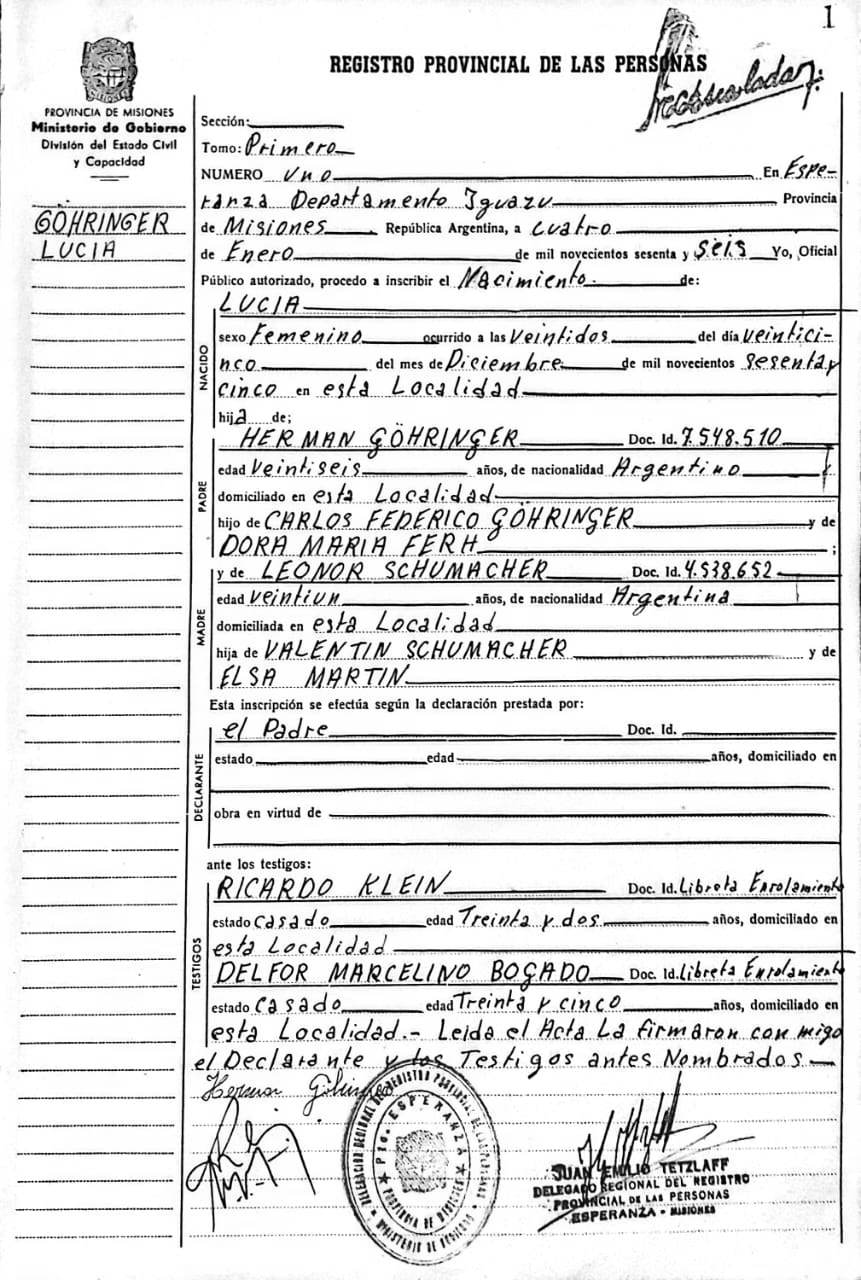 1
REGISTRO PROVINCIAL DE LAS PERSONAS
PROVINCIA DE MISIONES
Ministerio de Gobierno
División del Estado Civil
y Capacidad
GÖHRINGER
LUCIA
Sección:
Tomo: Primero
NUMERO Uno En Espe-
ranza Departamento Iguazu Provincia
de Misiones República Argentina, a cuatro
de Enero de mil novecientos sesenta y seis Yo, Oficial
Público autorizado, procedo a inscribir el Nacimiento. de:
NACIDO
LUCIA
sexo Femenino ocurrido a las Veintidos del día veintici-
nco del mes de Diciembre de mil novecientos sesenta y
cinco en esta Localidad
hija de;
PADRE
HERMAN GÖHRINGER Doc. Id. 7.548.510
edad Veintiseis años, de nacionalidad Argentino
domiciliado en esta Localidad
hijo de CARLOS FEDERICO GÖHRINGER y de
DORA MARIA FERH ;
MADRE
y de LEONOR SCHUMACHER Doc. Id. 4.538.652
edad Veintiun años, de nacionalidad Argentina
domiciliada en esta Localidad
hija de VALENTIN SCHUMACHER y de
ELSA MARTIN
Esta inscripción se efectúa según la declaración prestada por:
DECLARANTE
el Padre Doc. Id.
estado edad años, domiciliado en
obra en virtud de
ante los testigos:
TESTIGOS
RICARDO KLEIN Doc. Id. Libreta Enrolamiento
estado Casado edad Treinta y dos años, domiciliado en
esta Localidad
DELFOR MARCELINO BOGADO Doc. Id. Libreta Enrolamiento
estado Casado edad Treinta y cinco años, domiciliado en
esta Localidad.- Leida el Acta La firmaron con migo
el Declarante y los Testigos antes Nombrados
Herman
DELEGACION REGIONAL DEL REGISTRO PROVINCIAL DE LAS PERSONAS
ESPERANZA
PROVINCIA DE MISIONES
MINISTERIO DE GOBIERNO
JUAN EMILIO TETZLAFF
DELEGADO REGIONAL DEL REGISTRO
PROVINCIAL DE LAS PERSONAS
ESPERANZA - MISIONES